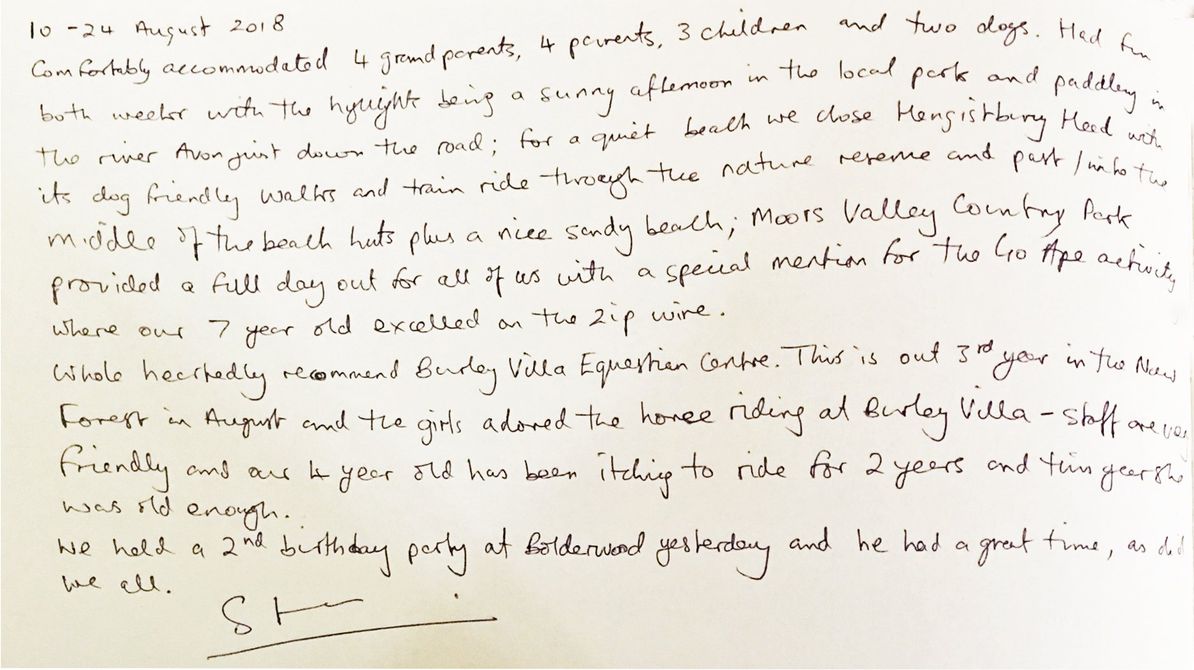 10 - 24 August 2018
Comfortably accommodated 4 grandparents, 4 parents, 3 children and two dogs. Had fun
both weeks with the hylights being a sunny afternoon in the local park and paddling in
the river Avon just down the road; for a quiet beach we chose Hengistbury Head with
its dog friendly walks and train ride through the nature reserve and past / into the
middle of the beach huts plus a nice sandy beach; Moors Valley Country Park
provided a full day out for all of us with a special mention for the Go Ape activity
where our 7 year old excelled on the zip wire.
Whole heartedly recommend Burley Villa Equestrian Centre. This is out 3rd year in the New
Forest in August and the girls adored the horse riding at Burley Villa - staff are very
friendly and our 4 year old has been itching to ride for 2 years and this year she
was old enough.
We held a 2nd birthday party at Bolderwood yesterday and he had a great time, as did
we all.